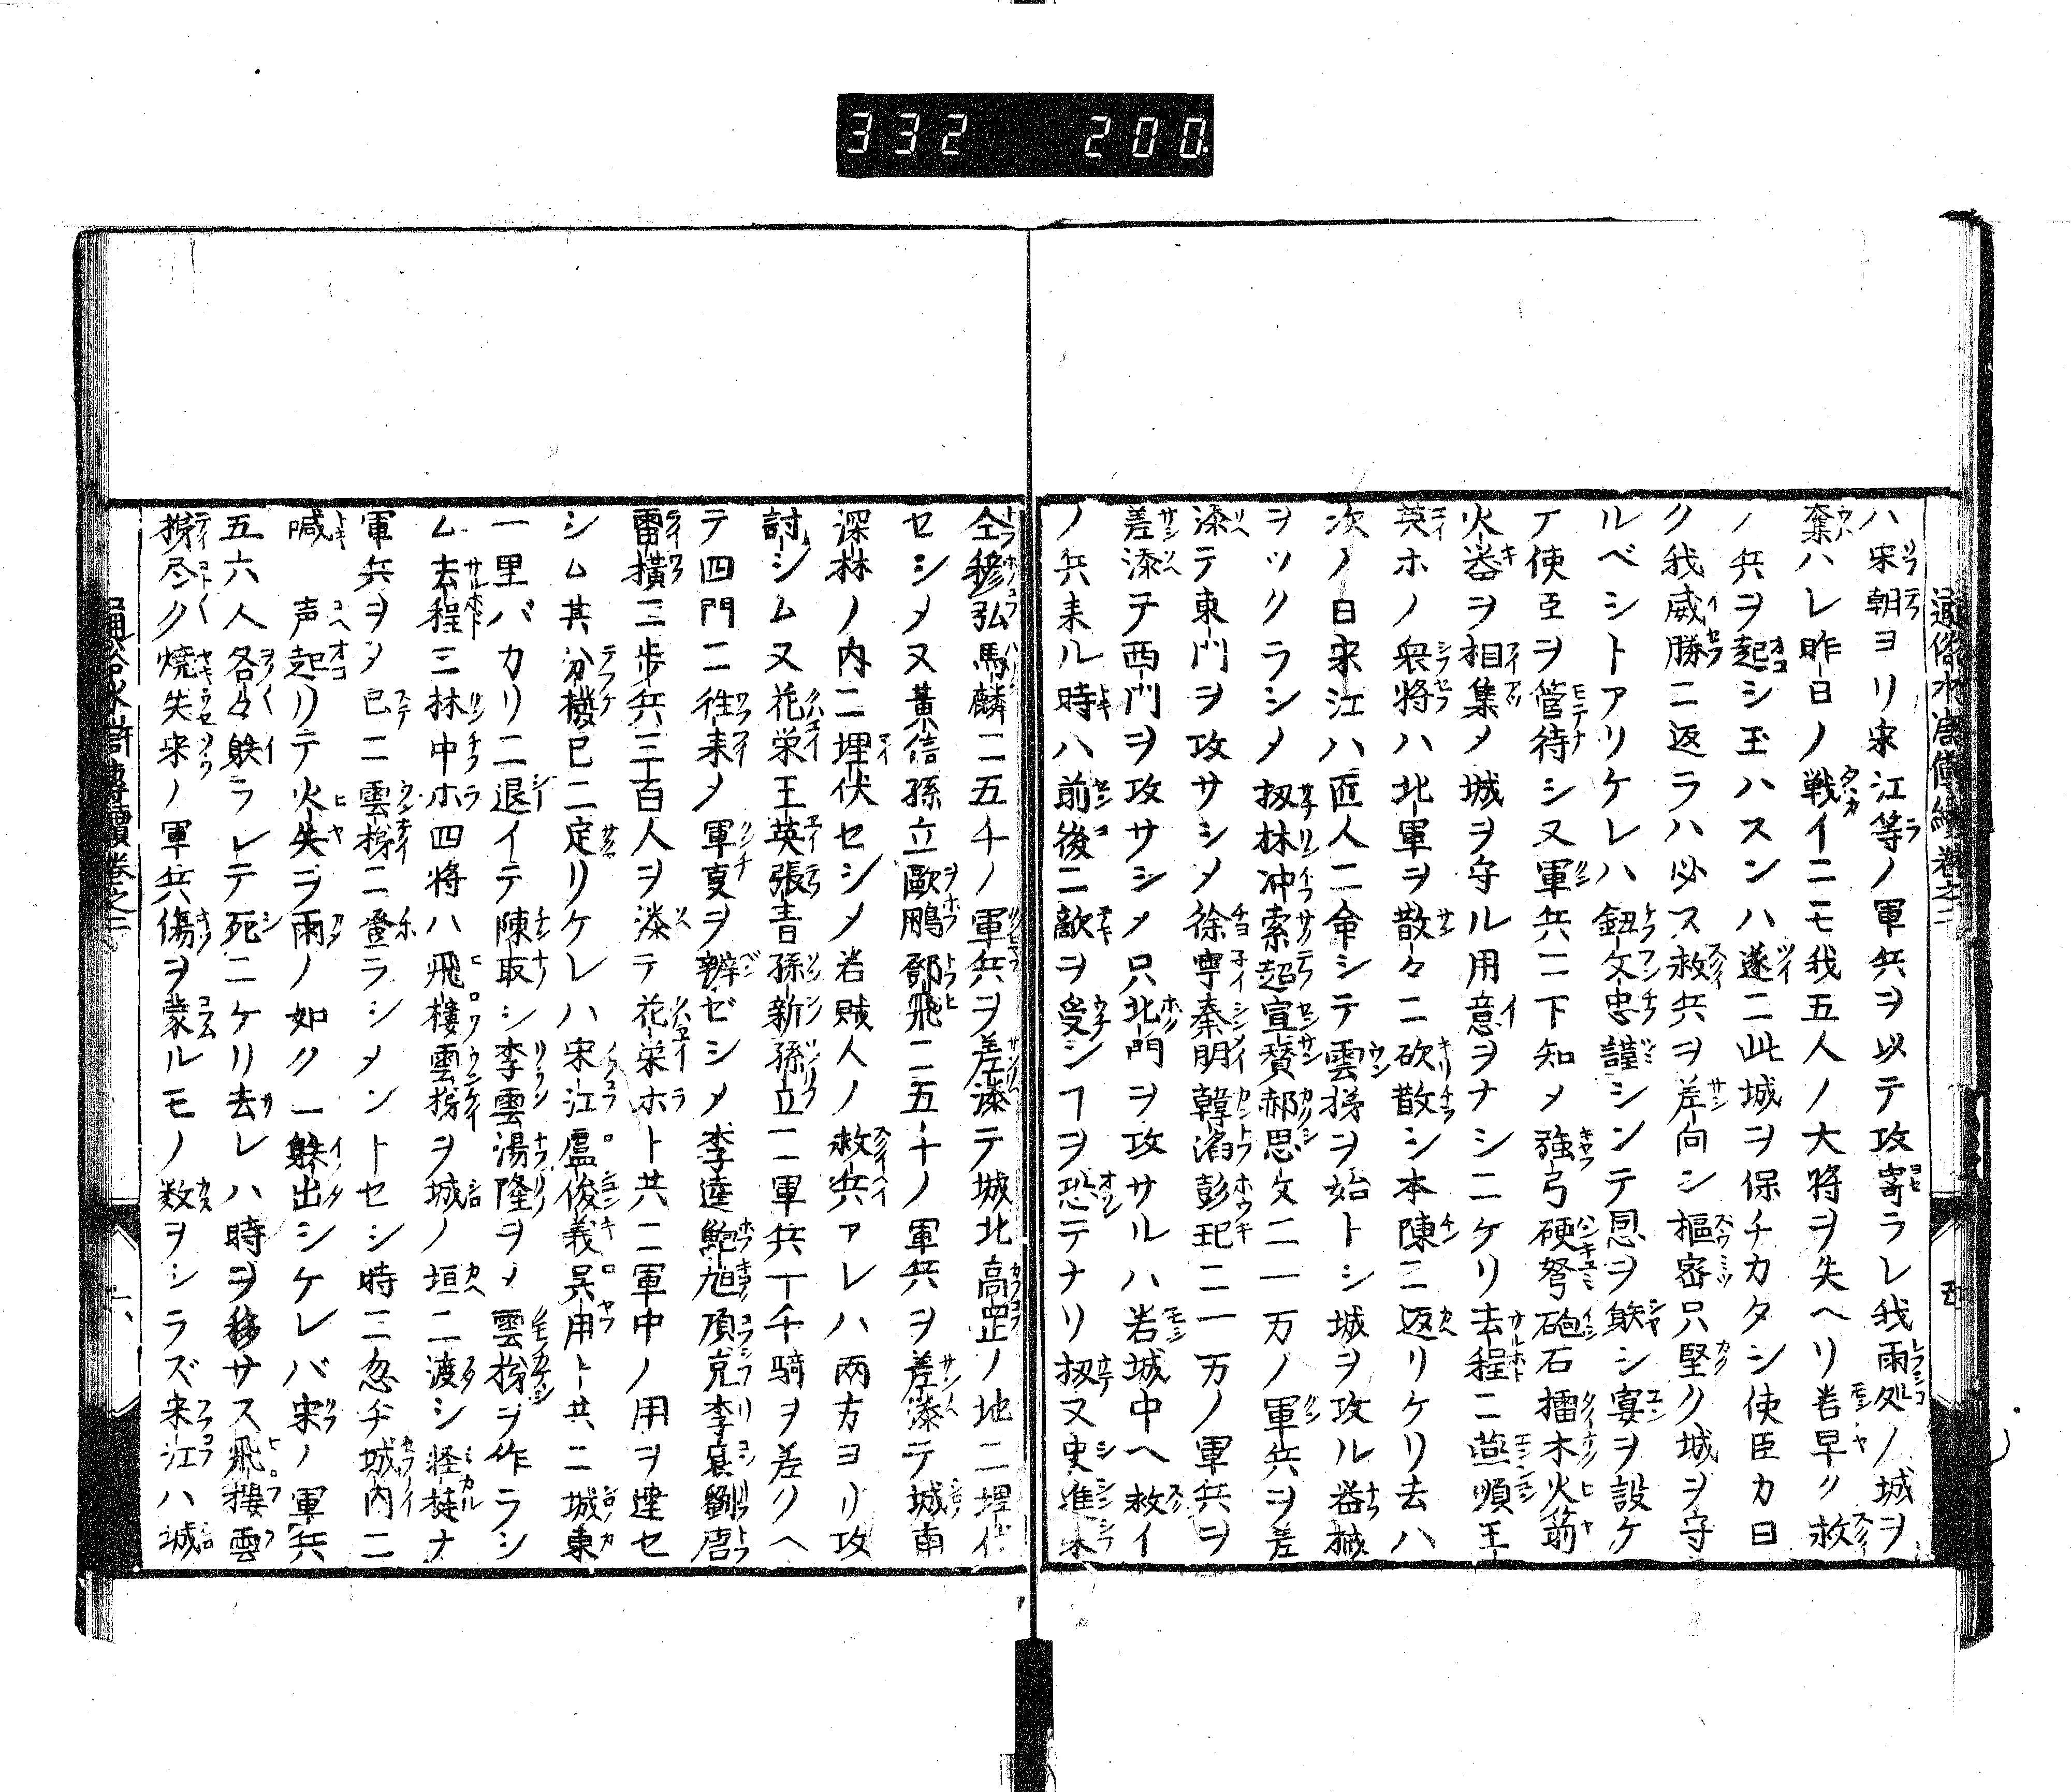 332 200.
通俗水滸傳續卷之二
五
ハ宋朝ヨリ宋江等ノ軍兵ヲ以テ攻寄ラレ我兩処ノ城ヲ
奪ハレ昨日ノ戦イニモ我五人ノ大将ヲ失ヘリ若早ク救
ノ兵ヲ起シ玉ハスンハ遂ニ此城ヲ保チカタシ使臣カ曰
ク我威勝ニ返ラハ必ス救兵ヲ差向シ樞密只堅ク城ヲ守
ルベシトアリケレハ鈕文忠謹シンテ恩ヲ躾シ宴ヲ設ケ
テ使臣ヲ管待シ又軍兵ニ下知メ強弓硬弩砲石擂木火箭
火器ヲ相集メ城ヲ守ル用意ヲナシニケリ去程ニ燕順王
英ホノ衆将ハ北軍ヲ散々ニ砍散シ本陳ニ返リケリ去ハ
次ノ日宋江ハ匠人ニ命シテ雲梯ヲ始トシ城ヲ攻ル器械
ヲツクラシメ扨林冲索超宣賛郝思文ニ一万ノ軍兵ヲ差
添テ東門ヲ攻サシメ徐寧秦明韓滔彭玘ニ一万ノ軍兵ヲ
差添テ西門ヲ攻サシメ只北門ヲ攻サルハ若城中ヘ救イ
ノ兵来ル時ハ前後ニ敵ヲ受ンヿヲ恐テナリ扨又史進朱
仝穆弘馬麟ニ五千ノ軍兵ヲ差添テ城北高岡ノ地ニ埋伏
セシメ又黄信孫立歐鵬鄧飛ニ五千ノ軍兵ヲ差添テ城南
深林ノ内ニ埋伏セシメ若賊人ノ救兵アレハ兩方ヨリ攻
討シム又花栄王英張青孫新孫立ニ軍兵一千騎ヲ差クヘ
テ四門ニ往来メ軍夏ヲ辨ゼシメ李逵鮑旭項充李袞劉唐
雷横ニ歩兵三百人ヲ添テ花栄ホト共ニ軍中ノ用ヲ達セ
シム其分機已ニ定リケレハ宋江盧俊義呉用ト共ニ城東
一里バカリニ退イテ陳取シ李雲湯隆ヲメ雲梯ヲ作ラシ
ム去程ニ林中ホ四将ハ飛樓雲梯ヲ城ノ垣ニ渡シ怪捷ナ
軍兵ヲメ已ニ雲梯ニ登ラシメントセシ時ニ忽チ城内ニ
喊声起リテ火失ヲ雨ノ如ク一躾出シケレバ宋ノ軍兵
五六人各々躾ラレテ死ニケリ去レハ時ヲ移サス飛樓雲
梯尽ク焼失宋ノ軍兵傷ヲ蒙ルモノ数ヲシラズ宋江ハ城
通俗水滸傳續卷之二
六